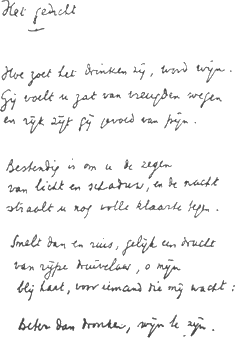 Het gedicht
Hoe zoet het drinken zij, word wijn.
Gij voelt u zat van vreugden wegen
en rijk zijt gij gevoed van pijn.
Bestendig is om u de zegen
van licht en schaduw, en de nacht
straalt u nog volle klaarte tegen.
Smelt dan en ruis, gelijk een dracht
van rijpe druivelaar, o mijn
blij hart, voor iemand die mij wacht:
Beter dan dronken, wijn te zijn.